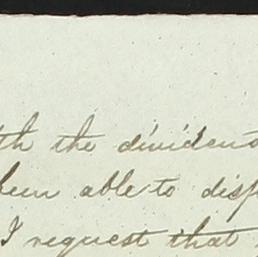 the dividend
been able to
I request that